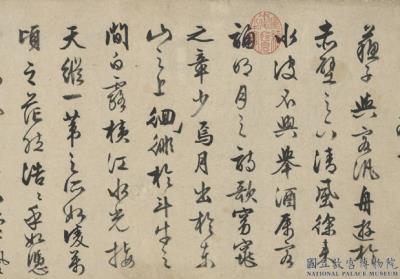 蘇子與客汎舟遊於
赤壁之下清風徐来
水波不興舉酒屬客
誦明月之詩歌窈窕
之章少焉月出於東
山之上徊徘於斗牛之
間白露橫江水光接
天縱一葦之所如凌萬
頃之茫然浩浩乎如憑
國立故宮博物院
NATIONAL PALACE MUSEUM